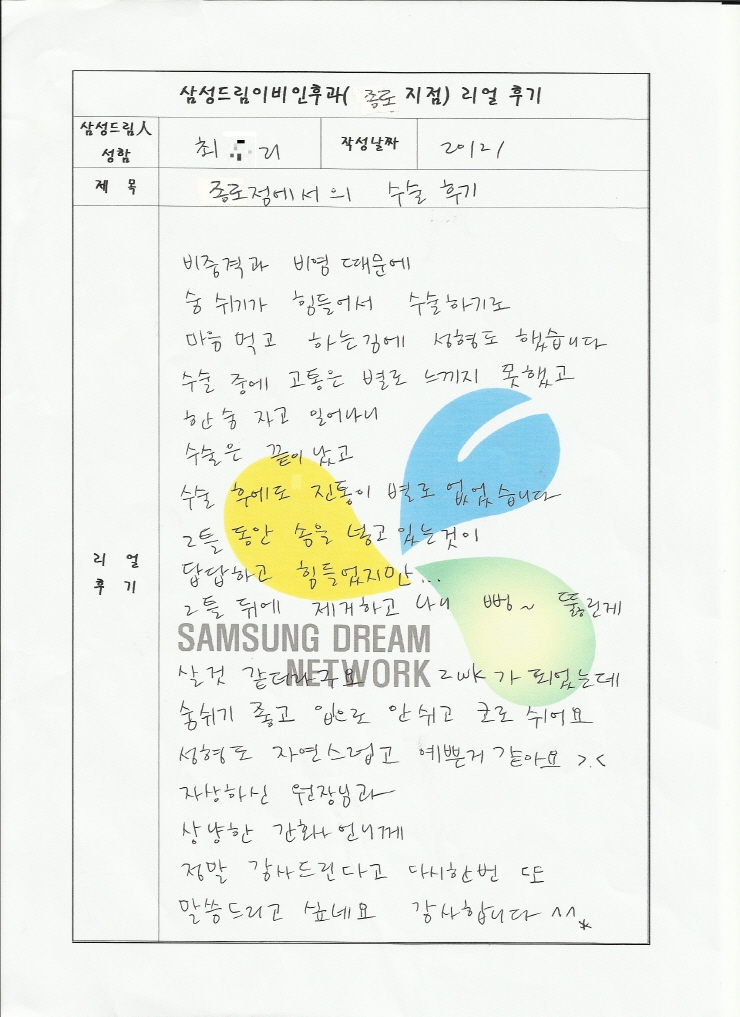 삼성드림이비인후과( 종로 지점) 리얼 후기
삼성드림人 성함
최 리
작성날짜
2012/
제 목
종로점에서의 수술 후기
리 얼 후 기
비중격과 비염 때문에
숨 쉬기가 힘들어서 수술하기로
마음 먹고 하는김에 성형도 했습니다
수술 중에 고통은 별로 느끼지 못했고
한 숨 자고 일어나니
수술은 끝이 났고
수술 후에도 진통이 별로 없었습니다
2틀 동안 솜을 넣고 있는것이
답답하고 힘들었지만...
2틀 뒤에 제거하고 나니 뻥~ 뚫린게
SAMSUNG DREAM
NETWORK
살것 같더라구요 2wk가 되었는데
숨쉬기 좋고 입으로 안쉬고 코로 쉬어요
성형도 자연스럽고 예쁜거 같아요 >.<
자상하신 원장님과
상냥한 간호사 언니께
정말 감사드린다고 다시한번 또
말씀드리고 싶네요 감사합니다 ^^*